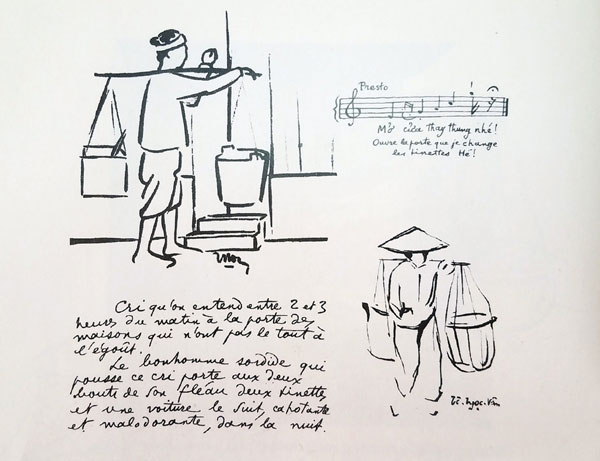 Presto
Mở cửa thay thùng nhé!
Ouvre la porte que je change
les tinettes Hé!
Cri qu'on entend entre 2 et 3
heures du matin à la porte des
maisons qui n'ont pas le tout à
l'égoût.
Le bonhomme sordide qui
pousse ce cri porte aux deux
bouts de son fléau deux tinettes
et une voiture le suit, cahotante
et malodorante, dans la nuit.
Tô.Ngọc.Vân